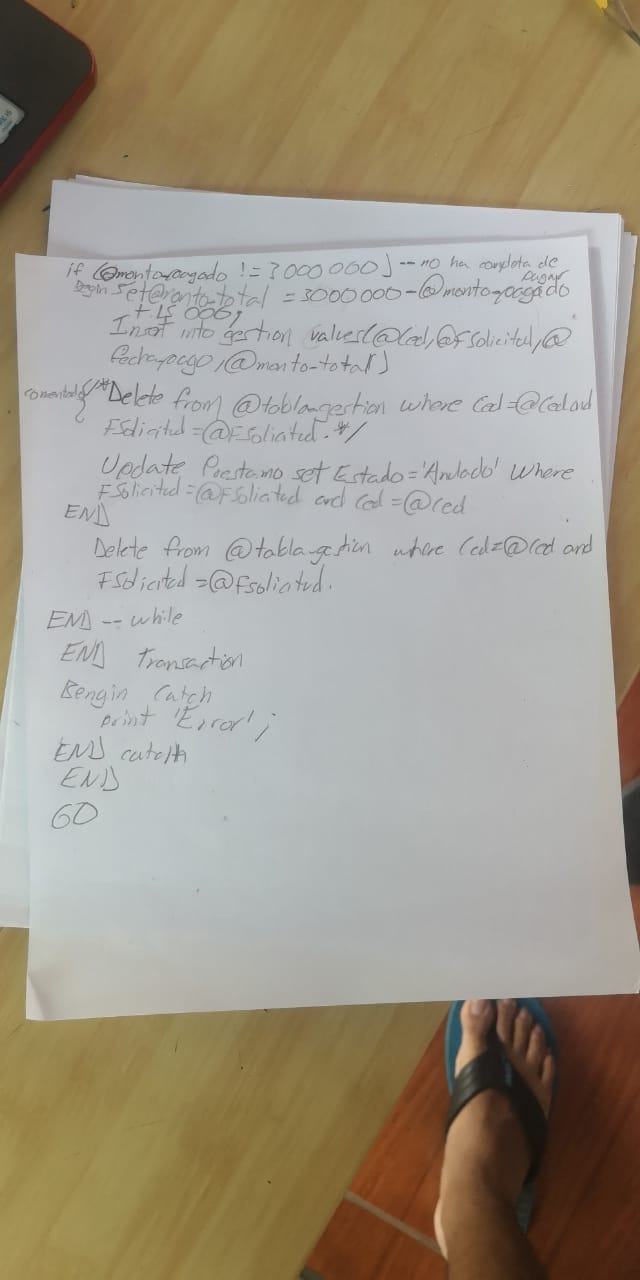 if (@monto-pagado != 3000000) -- no ha completa de
pagar
Begin Set@monto-total = 3000000-@monto-pagado
+ 15 000;
Insert into gestion values(@Ced,@FSolicitud,@
fechapago,@monto-total)
comentado{/*Delete from @tablangestion where Ced=@Ced and
FSolicitud=@FSolicitud.*/
Update Prestamo set Estado='Anulado' Where
FSolicitud=@FSolicitud and Ced=@Ced
END
Delete from @tabla-gestion where Ced=@Ced and
FSolicitud=@Fsolicitud.
END -- while
END Transaction
Bengin Catch
print 'Error';
END catch
END
GO